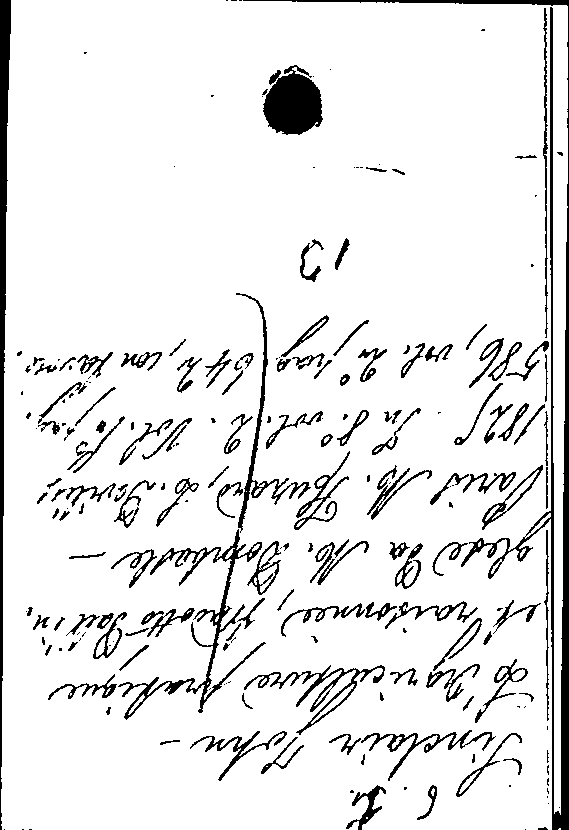 Sinclair John –
L'agriculture pratique
et raisonnée, tradotto dall'in,
glese da M. Dombasle –
Paris M. Huzard, L.
1825 In 8.° vol. 2. Vol. 1.° pag.
586, vol. 2.° pag. 642, con tavole.
13